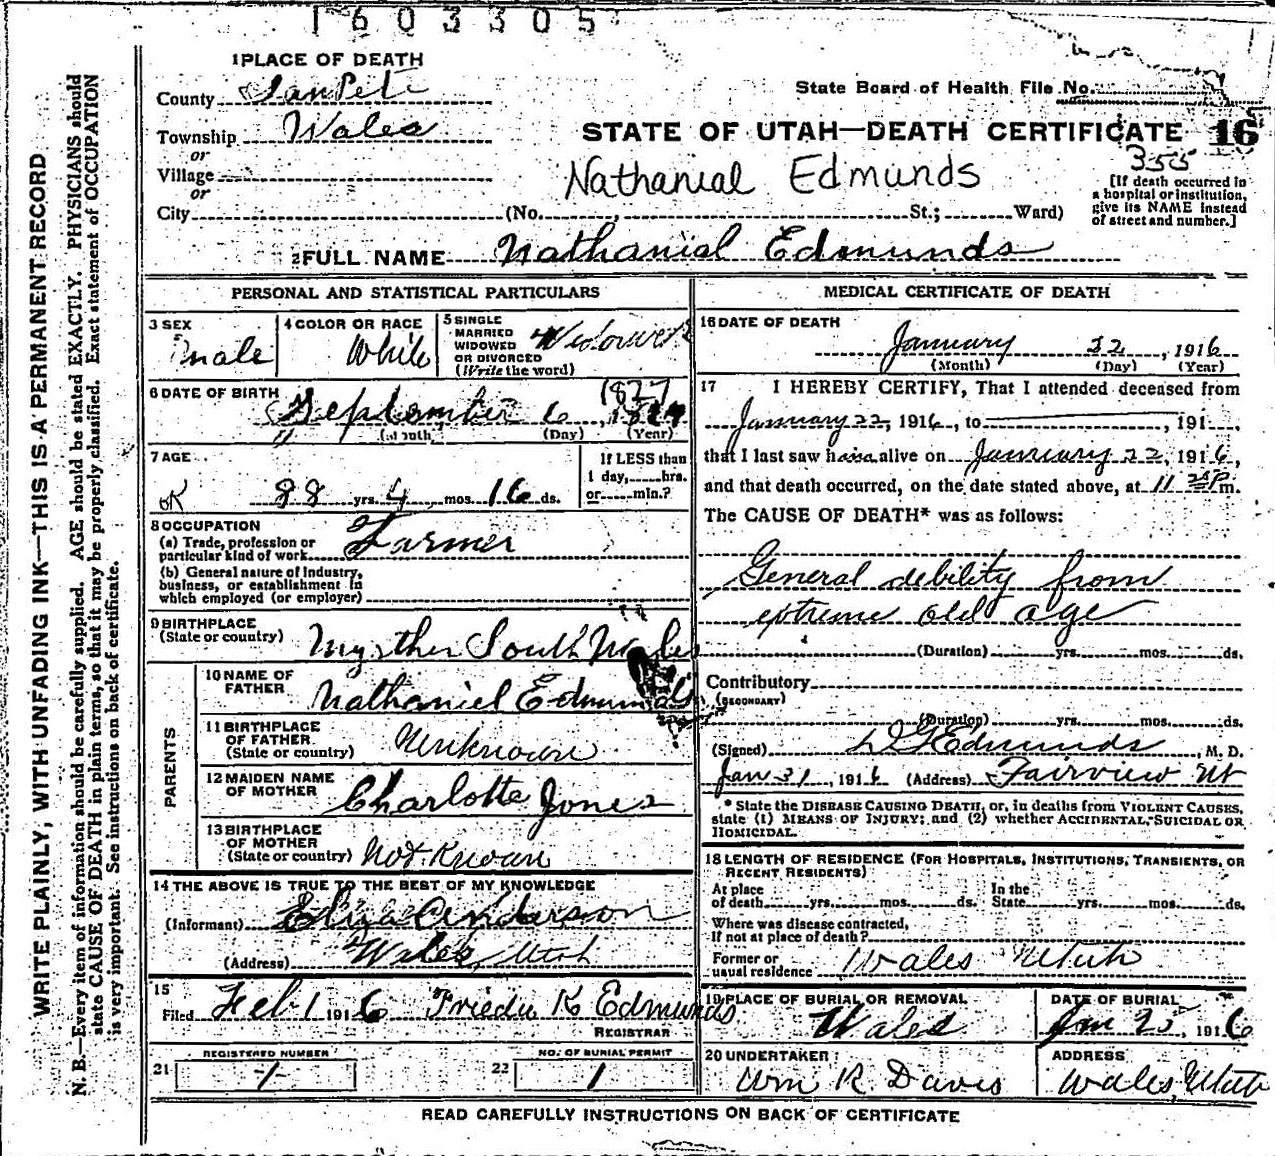 1603305
1 PLACE OF DEATH
County SanPete
State Board of Health File No.
Township Wales
STATE OF UTAH—DEATH CERTIFICATE 16
or
Village
355
Nathanial Edmunds
or
[If death occurred in a hospital or institution, give its NAME instead of street and number.]
City (No. , St.; Ward)
2 FULL NAME Nathanial Edmunds
PERSONAL AND STATISTICAL PARTICULARS
3 SEX
male
4 COLOR OR RACE
White
5 SINGLE MARRIED WIDOWED OR DIVORCED (Write the word)
Widower
6 DATE OF BIRTH
1827
September 6, 18
(Month) (Day) (Year)
7 AGE
OK 88 yrs. 4 mos. 16 ds.
If LESS than
1 day, hrs.
or min.?
8 OCCUPATION
(a) Trade, profession or
particular kind of work Farmer
(b) General nature of Industry,
business, or establishment in
which employed (or employer)
9 BIRTHPLACE
(State or country) Myrther South Wales
PARENTS
10 NAME OF
FATHER Nathaniel Edmunds
11 BIRTHPLACE
OF FATHER
(State or country) Unknown
12 MAIDEN NAME
OF MOTHER Charlotte Jones
13 BIRTHPLACE
OF MOTHER
(State or country) Not Known
14 THE ABOVE IS TRUE TO THE BEST OF MY KNOWLEDGE
(Informant) Eliza Anderson
(Address) Wales, Utah
15
Filed Feb 1 1916 K Edmunds
REGISTRAR
REGISTERED NUMBER
21 1
NO. OF BURIAL PERMIT
22 1
MEDICAL CERTIFICATE OF DEATH
16 DATE OF DEATH
January 22, 1916
(Month) (Day) (Year)
17 I HEREBY CERTIFY, That I attended deceased from
January 22, 1916, to , 191
that I last saw him alive on January 22, 1916,
and that death occurred, on the date stated above, at 11 m.
The CAUSE OF DEATH* was as follows:
General debility from
extreme old age
(Duration) yrs. mos. ds.
Contributory
(SECONDARY)
(Duration) yrs. mos. ds.
(Signed) Edmunds, M. D.
Jan 31, 1916 (Address) Fairview Ut
* State the DISEASE CAUSING DEATH, or, in deaths from VIOLENT CAUSES,
state (1) MEANS OF INJURY; and (2) whether ACCIDENTAL, SUICIDAL OR
HOMICIDAL.
18 LENGTH OF RESIDENCE (FOR HOSPITALS, INSTITUTIONS, TRANSIENTS, OR
RECENT RESIDENTS)
At place
of death yrs. mos. ds.
In the
State yrs. mos. ds.
Where was disease contracted,
If not at place of death?
Former or
usual residence Wales Utah
19 PLACE OF BURIAL OR REMOVAL
Wales
DATE OF BURIAL
Jan 25, 1916
20 UNDERTAKER
Wm R. Davis
ADDRESS
Wales, Utah
READ CAREFULLY INSTRUCTIONS ON BACK OF CERTIFICATE
WRITE PLAINLY, WITH UNFADING INK—THIS IS A PERMANENT RECORD
N. B.—Every item of information should be carefully supplied. AGE should be stated EXACTLY. PHYSICIANS should
state CAUSE OF DEATH in plain terms, so that it may be properly classified. Exact statement of OCCUPATION
is very important. See instructions on back of certificate.